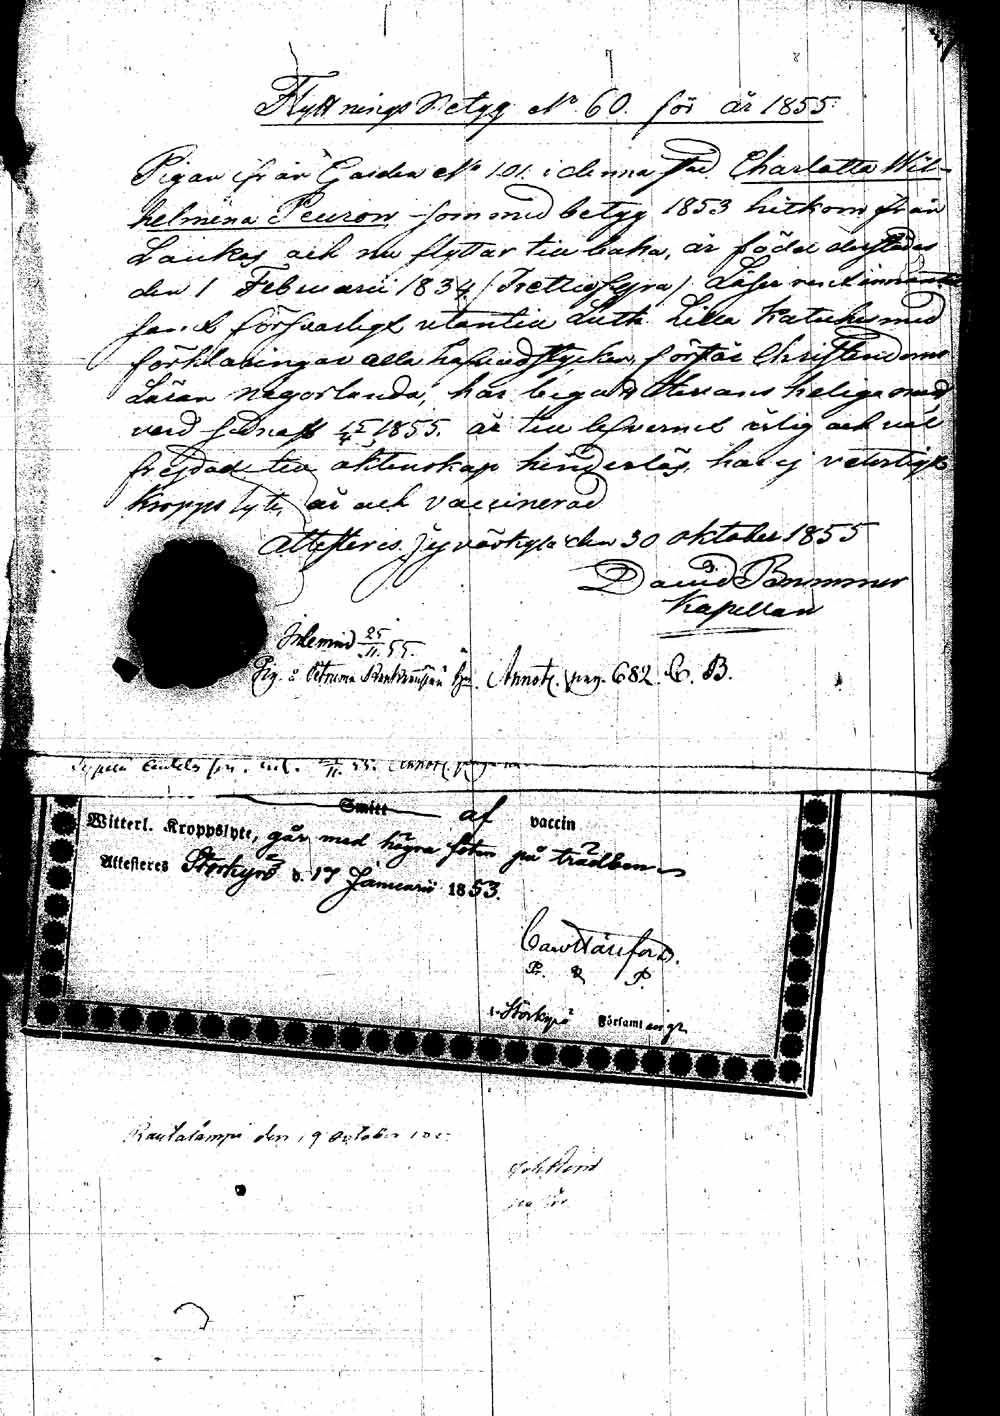 Flyttnings Betyg No 60. för år 1855.
Pigan från Gården No 101. i denna stad Charlotta Wil-
helmina Peuron som med betyg 1853 hitkom från
Laukas och nu flyttar tillbaka, är född derstädes
den 1 Februarii 1834 (Trettiofyra) Läser rent innantill
samt försvarligt utantill Luth. Lilla Katches med
förklaringar alla hufvudstycken, förstår Christendoms
Läran någorlunda, har begått Herrans heliga natt
vard sednast 15/4 1855. är till lefvernet ärlig och väl
frejdad till äktenskap hinderlös, har ej veterligt
kroppslyte, är ock vaccinerad
Attesteras Jyväskylä den 30 oktober 1855
David Bammer
Kapellan
Inlemnad 25/11 55.
Annot. pag. 682. C. B.
11. 55. Annot. pag
Smitt af vaccin
Witterl. Kroppslyte, går med högra foten på trädben
Attesteres Storkyro d. 17 Januarii 1853.
P. P.
i Storkyro Församlingr
Rautalampi den 19 October